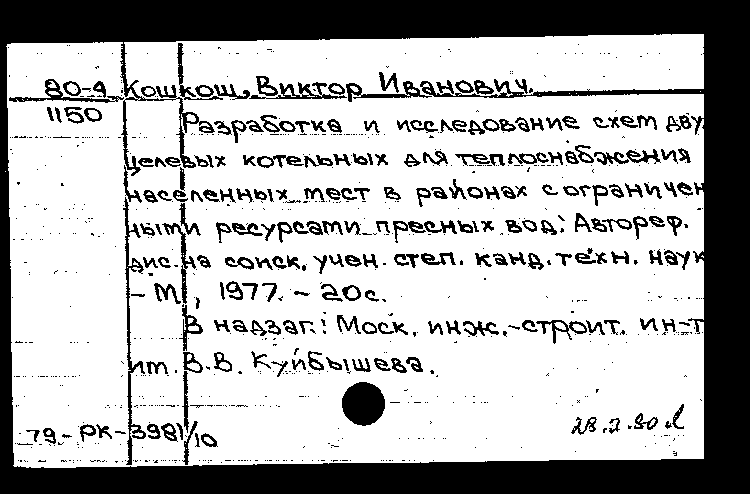 80-4 Кошкош, Виктор Иванович.
1150
Разработка и исследование схем дву
целевых котельных для теплоснабжения
населенных мест в районах с ограничен
ными ресурсами пресных вод: Автореф.
дис. на соиск. учен. степ. канд. техн. наук
– М., 1977. – 20с.
В надзаг.: Моск. инж.-строит. ин-т
им. В.В. Куйбышева.
79-РК-3981/10
28.2.80